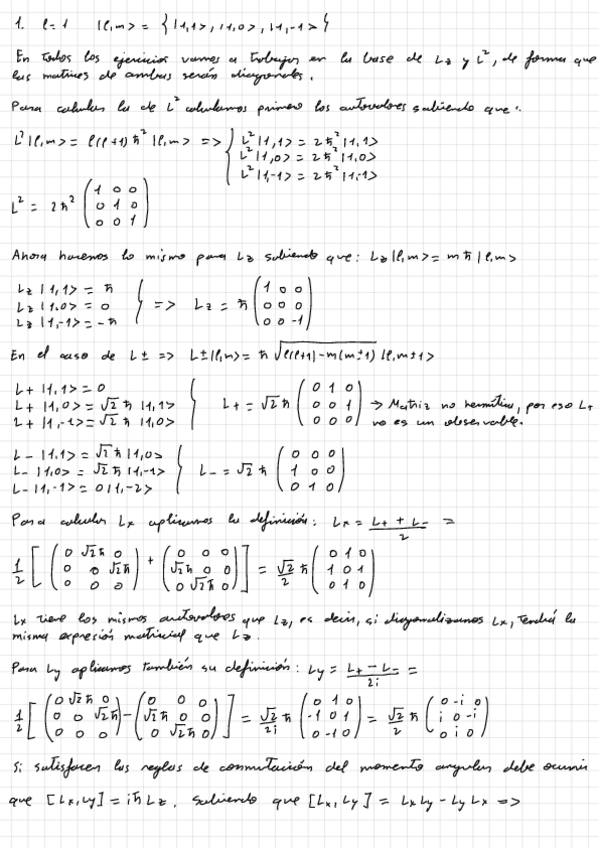 1. l=1 |l,m> = { |1,1>, |1,0>, |1,-1> }
En todos los ejercicios vamos a trabajar en la base de Lz y L², de forma que
las matrices de ambas serán diagonales.
Para calcular la de L² calculamos primero los autovalores sabiendo que:
L²|l,m> = l(l+1)ħ²|l,m> => { L²|1,1> = 2ħ²|1,1>
L²|1,0> = 2ħ²|1,0>
L²|1,-1> = 2ħ²|1,-1>
L² = 2ħ² (1 0 0
0 1 0
0 0 1)
Ahora hacemos lo mismo para Lz sabiendo que: Lz|l,m> = mħ|l,m>
Lz|1,1> = ħ
Lz|1,0> = 0
Lz|1,-1> = -ħ } => Lz = ħ (1 0 0
0 0 0
0 0 -1)
En el caso de L± => L±|l,m> = ħ √(l(l+1)-m(m±1)) |l,m±1>
L+|1,1> = 0
L+|1,0> = √2 ħ |1,1>
L+|1,-1> = √2 ħ |1,0>
L+ = √2 ħ (0 1 0
0 0 1
0 0 0) → Matriz no hermítica, por eso L+
no es un observable.
L-|1,1> = √2 ħ |1,0>
L-|1,0> = √2 ħ |1,-1>
L-|1,-1> = 0|1,-2>
L- = √2 ħ (0 0 0
1 0 0
0 1 0)
Para calcular Lx aplicamos la definición: Lx = (L+ + L-)/2 =
1/2 [ (0 √2ħ 0
0 0 √2ħ
0 0 0) + (0 0 0
√2ħ 0 0
0 √2ħ 0) ] = √2/2 ħ (0 1 0
1 0 1
0 1 0)
Lx tiene los mismos autovalores que Lz, es decir, si diagonalizamos Lx, tendrá la
misma expresión matricial que Lz.
Para Ly aplicamos también su definición: Ly = (L+ - L-)/2i =
1/2 [ (0 √2ħ 0
0 0 √2ħ
0 0 0) - (0 0 0
√2ħ 0 0
0 √2ħ 0) ] = √2/2i ħ (0 1 0
-1 0 1
0 -1 0) = √2/2 ħ (0 -i 0
i 0 -i
0 i 0)
Si satisfacen las reglas de conmutación del momento angular debe ocurrir
que [Lx,Ly] = iħLz. Sabiendo que [Lx,Ly] = LxLy - LyLx =>